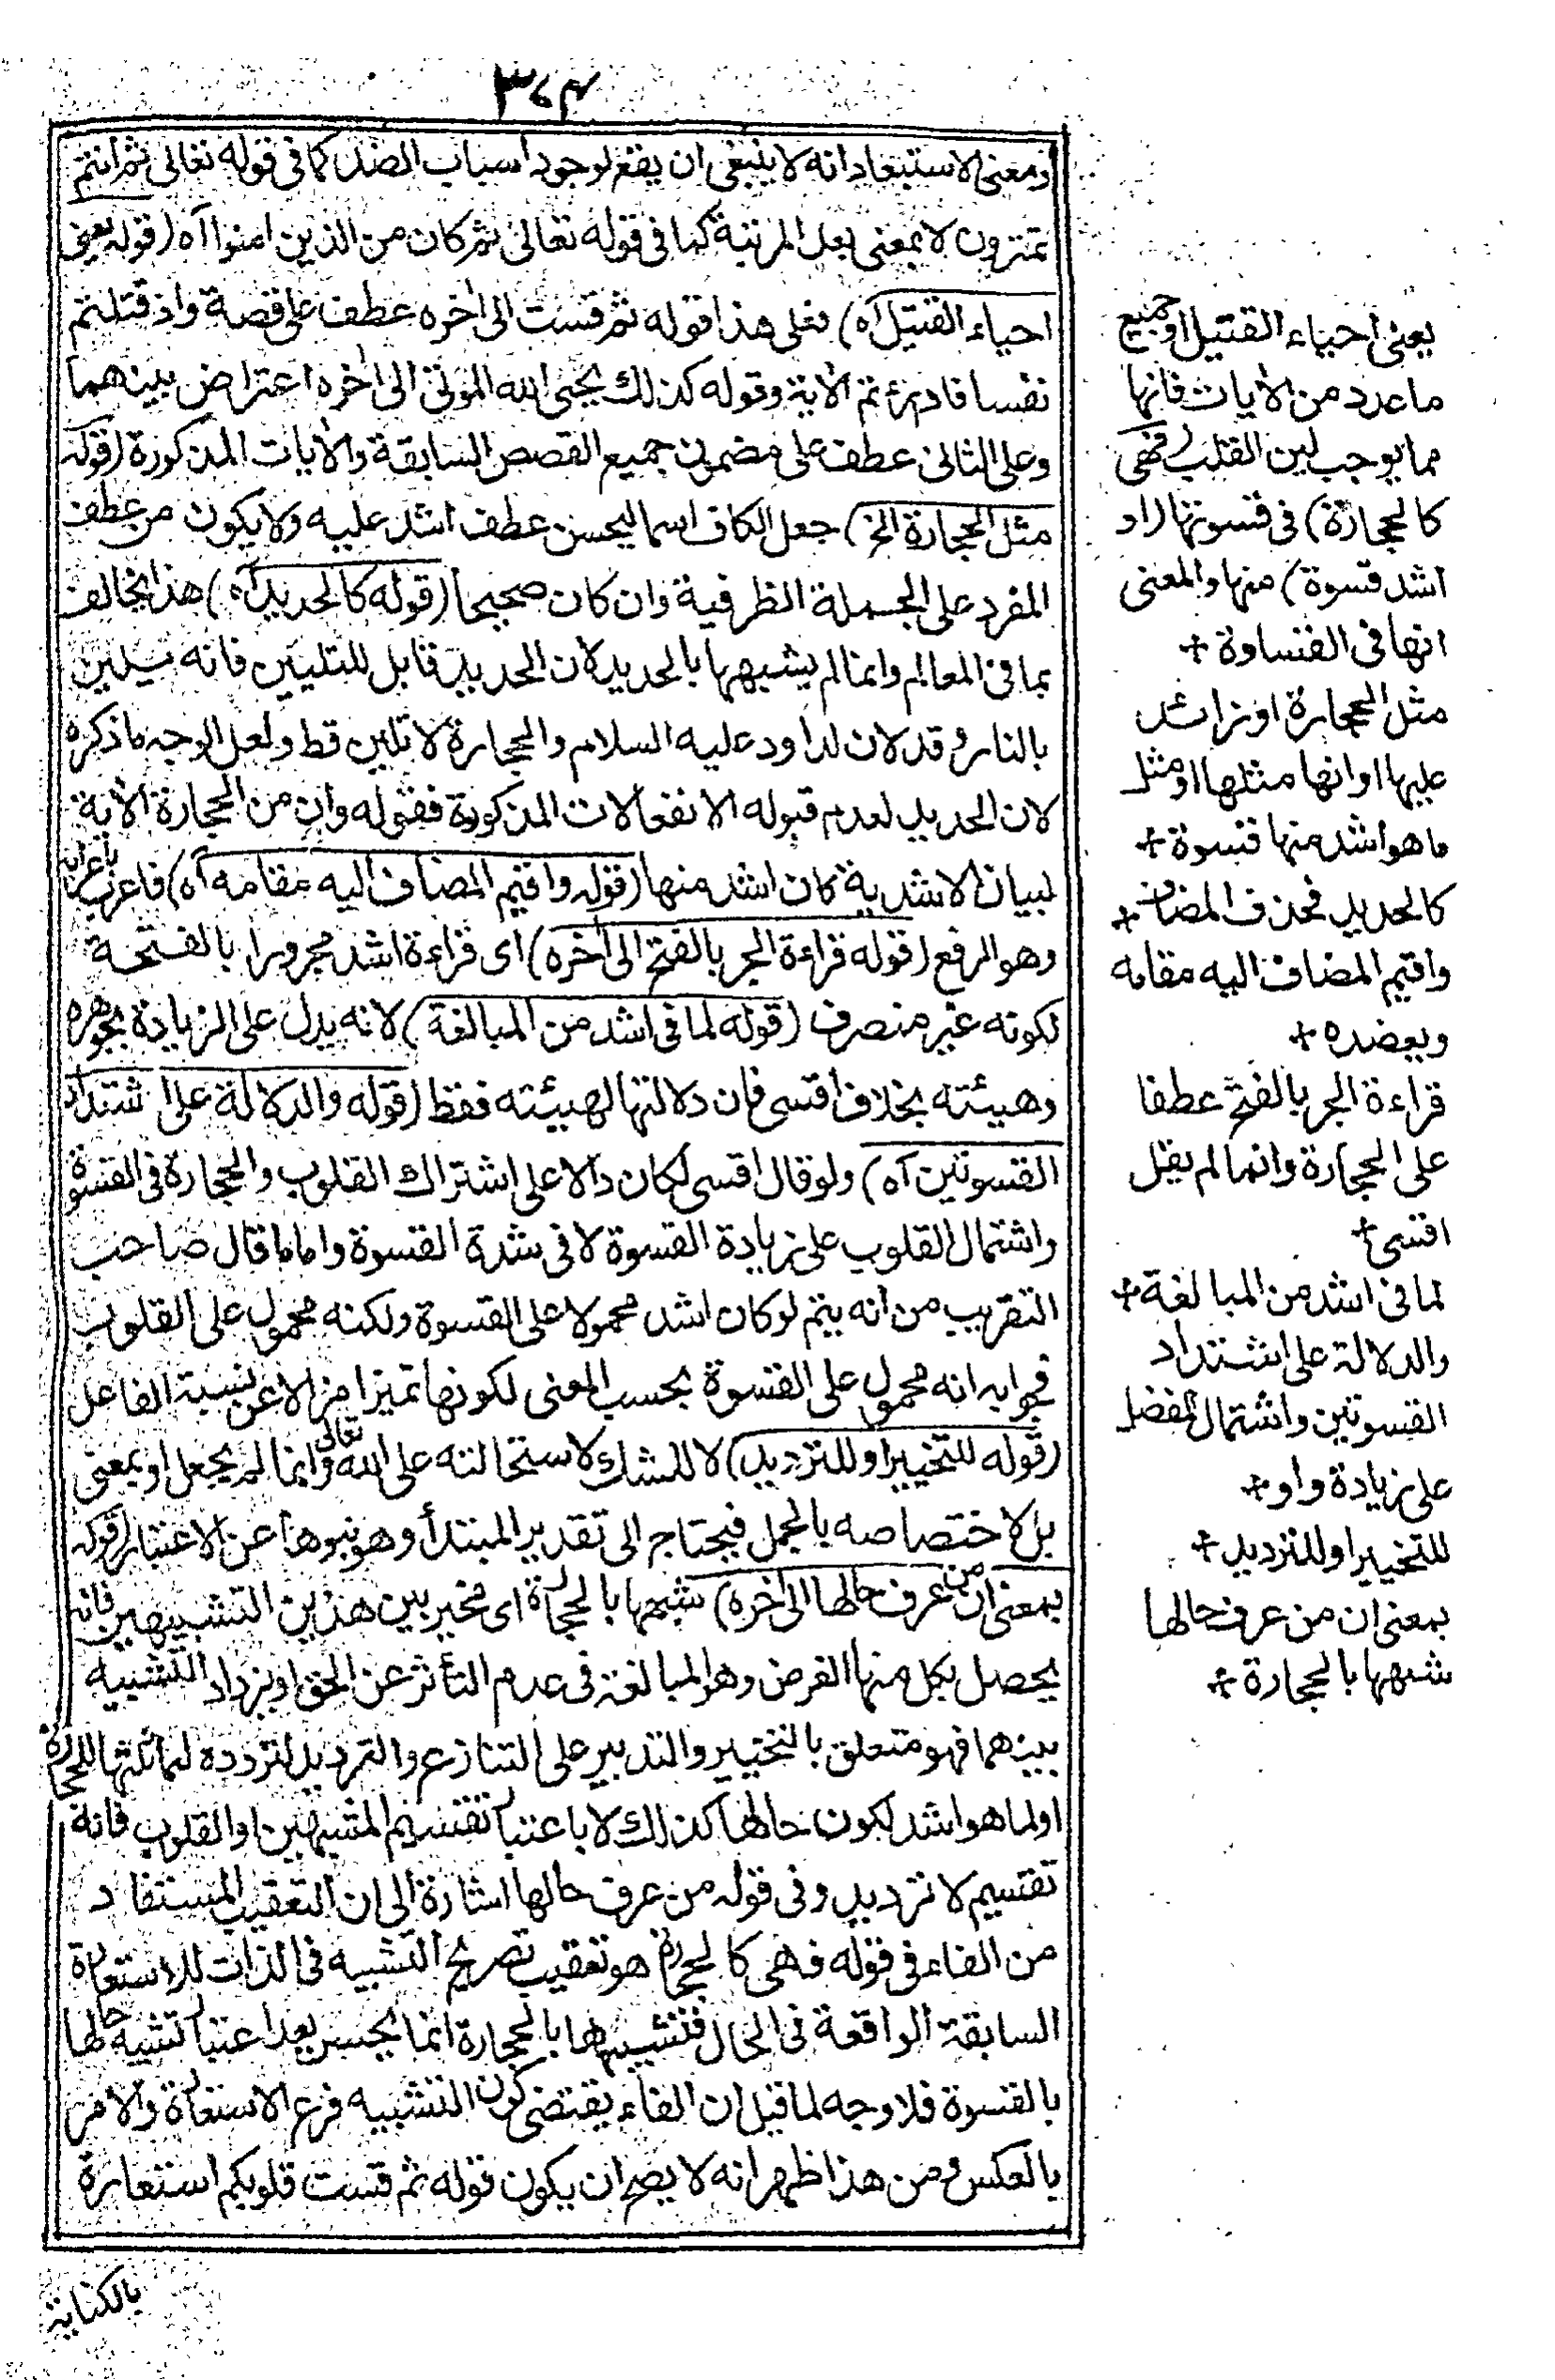 ٣٧٤
ومعنى الاستبعاد انه لا ينبغى ان يقع لوجود اسباب الضد كما فى قوله تعالى ثم انتم
تمترون لا بمعنى بعد المرتبة كما فى قوله تعالى ثم كان من الذين امنوا آه (قوله يعنى
احياء القتيل آه) فعلى هذا قوله ثم قست الى اخره عطف على قصة واذ قتلتم
نفسا فادرءتم الآية وقوله كذلك يحيى الله الموتى الى اخره اعتراض بينهما
وعلى الثانى عطف على مضمون جميع القصص السابقة والآيات المذكورة (قوله
مثل الحجارة الخ) جعل الكاف اسما ليحسن عطف اشد عليه ولا يكون من عطف
المفرد على الجملة الظرفية وان كان صحيحا (قوله كالحديد آه) هذا يخالف
بما فى المعالم وانما لم يشبهها بالحديد لان الحديد قابل للتليين فانه يلين
بالنار وقد لان لداود عليه السلام والحجارة لا تلين قط ولعل الوجه ما ذكره
لان الحديد لعدم قبوله الانفعالات المذكورة فقوله وان من الحجارة الآية
لبيان الاشدية كان اشد منها (قوله واقيم المضاف اليه مقامه آه) فاعرب باعرابه
وهو الرفع (قوله قراءة الجر بالفتح الى اخره) اى قراءة اشد مجرورا بالفتحة
لكونه غير منصرف (قوله لما فى اشد من المبالغة) لانه يدل على الزيادة بجوهره
وهيئته بخلاف اقسى فان دلالتها لهيئته فقط (قوله والدلالة على اشتداد
القسوتين آه) ولو قال اقسى لكان دالا على اشتراك القلوب والحجارة فى القسوة
واشتمال القلوب على زيادة القسوة لا فى شدة القسوة واما ما قال صاحب
التقريب من انه يتم لو كان اشد محمولا على القسوة ولكنه محمول على القلوب
فجوابه انه محمول على القسوة بحسب المعنى لكونها تميزا مزالا عن نسبة الفاعل
(قوله للتخيير او للترديد) لا للشك لاستحالته على الله تعالى وانما لم يجعل او بمعنى
بل لاختصاصه بالجمل فيحتاج الى تقدير المبتدأ وهو نبوها عن الاعتبار (قوله
بمعنى ان من عرف حالها الى اخره) شبهها بالحجارة اى مخير بين هذين التشبيهين فانه
يحصل بكل منها الغرض وهو المبالغة فى عدم التأثر عن الحق او يزداد التشبيه
بينهما فهو متعلق بالتخيير والتدبير على التنازع والترديد لتردده لمماثلتها للحجارة
او لما هو اشد لكون حالها كذلك لا باعتبار تقسيم المشبهين او القلوب فانه
تقسيم لا ترديد وفى قوله من عرف حالها اشارة الى ان التعقيب المستفاد
من الفاء فى قوله فهى كالحجارة هو تعقيب تصريح التشبيه فى الذات للاستعارة
السابقة الواقعة فى الحال فتشبيهها بالحجارة انما يحسن بعد اعتبار تشبيه حالها
بالقسوة فلا وجه لما قيل ان الفاء يقتضى كون التشبيه فرع الاستعارة والامر
بالعكس ومن هذا ظهر انه لا يصح ان يكون قوله ثم قست قلوبكم استعارة
بالكناية
يعنى احياء القتيل او جميع
ما عدد من الآيات فانها
مما يوجب لين القلب (فهى
كالحجارة) فى قسوتها (او
اشد قسوة) منها والمعنى
انها فى القساوة +
مثل الحجارة او زائد
عليها او انها مثلها او مثل
ما هو اشد منها قسوة +
كالحديد فحذف المضاف +
واقيم المضاف اليه مقامه
ويعضده +
قراءة الجر بالفتح عطفا
على الحجارة وانما لم يقل
اقسى +
لما فى اشد من المبالغة +
والدلالة على اشتداد
القسوتين واشتمال المفضل
على زيادة واو +
للتخيير او للترديد +
بمعنى ان من عرف حالها
شبهها بالحجارة +